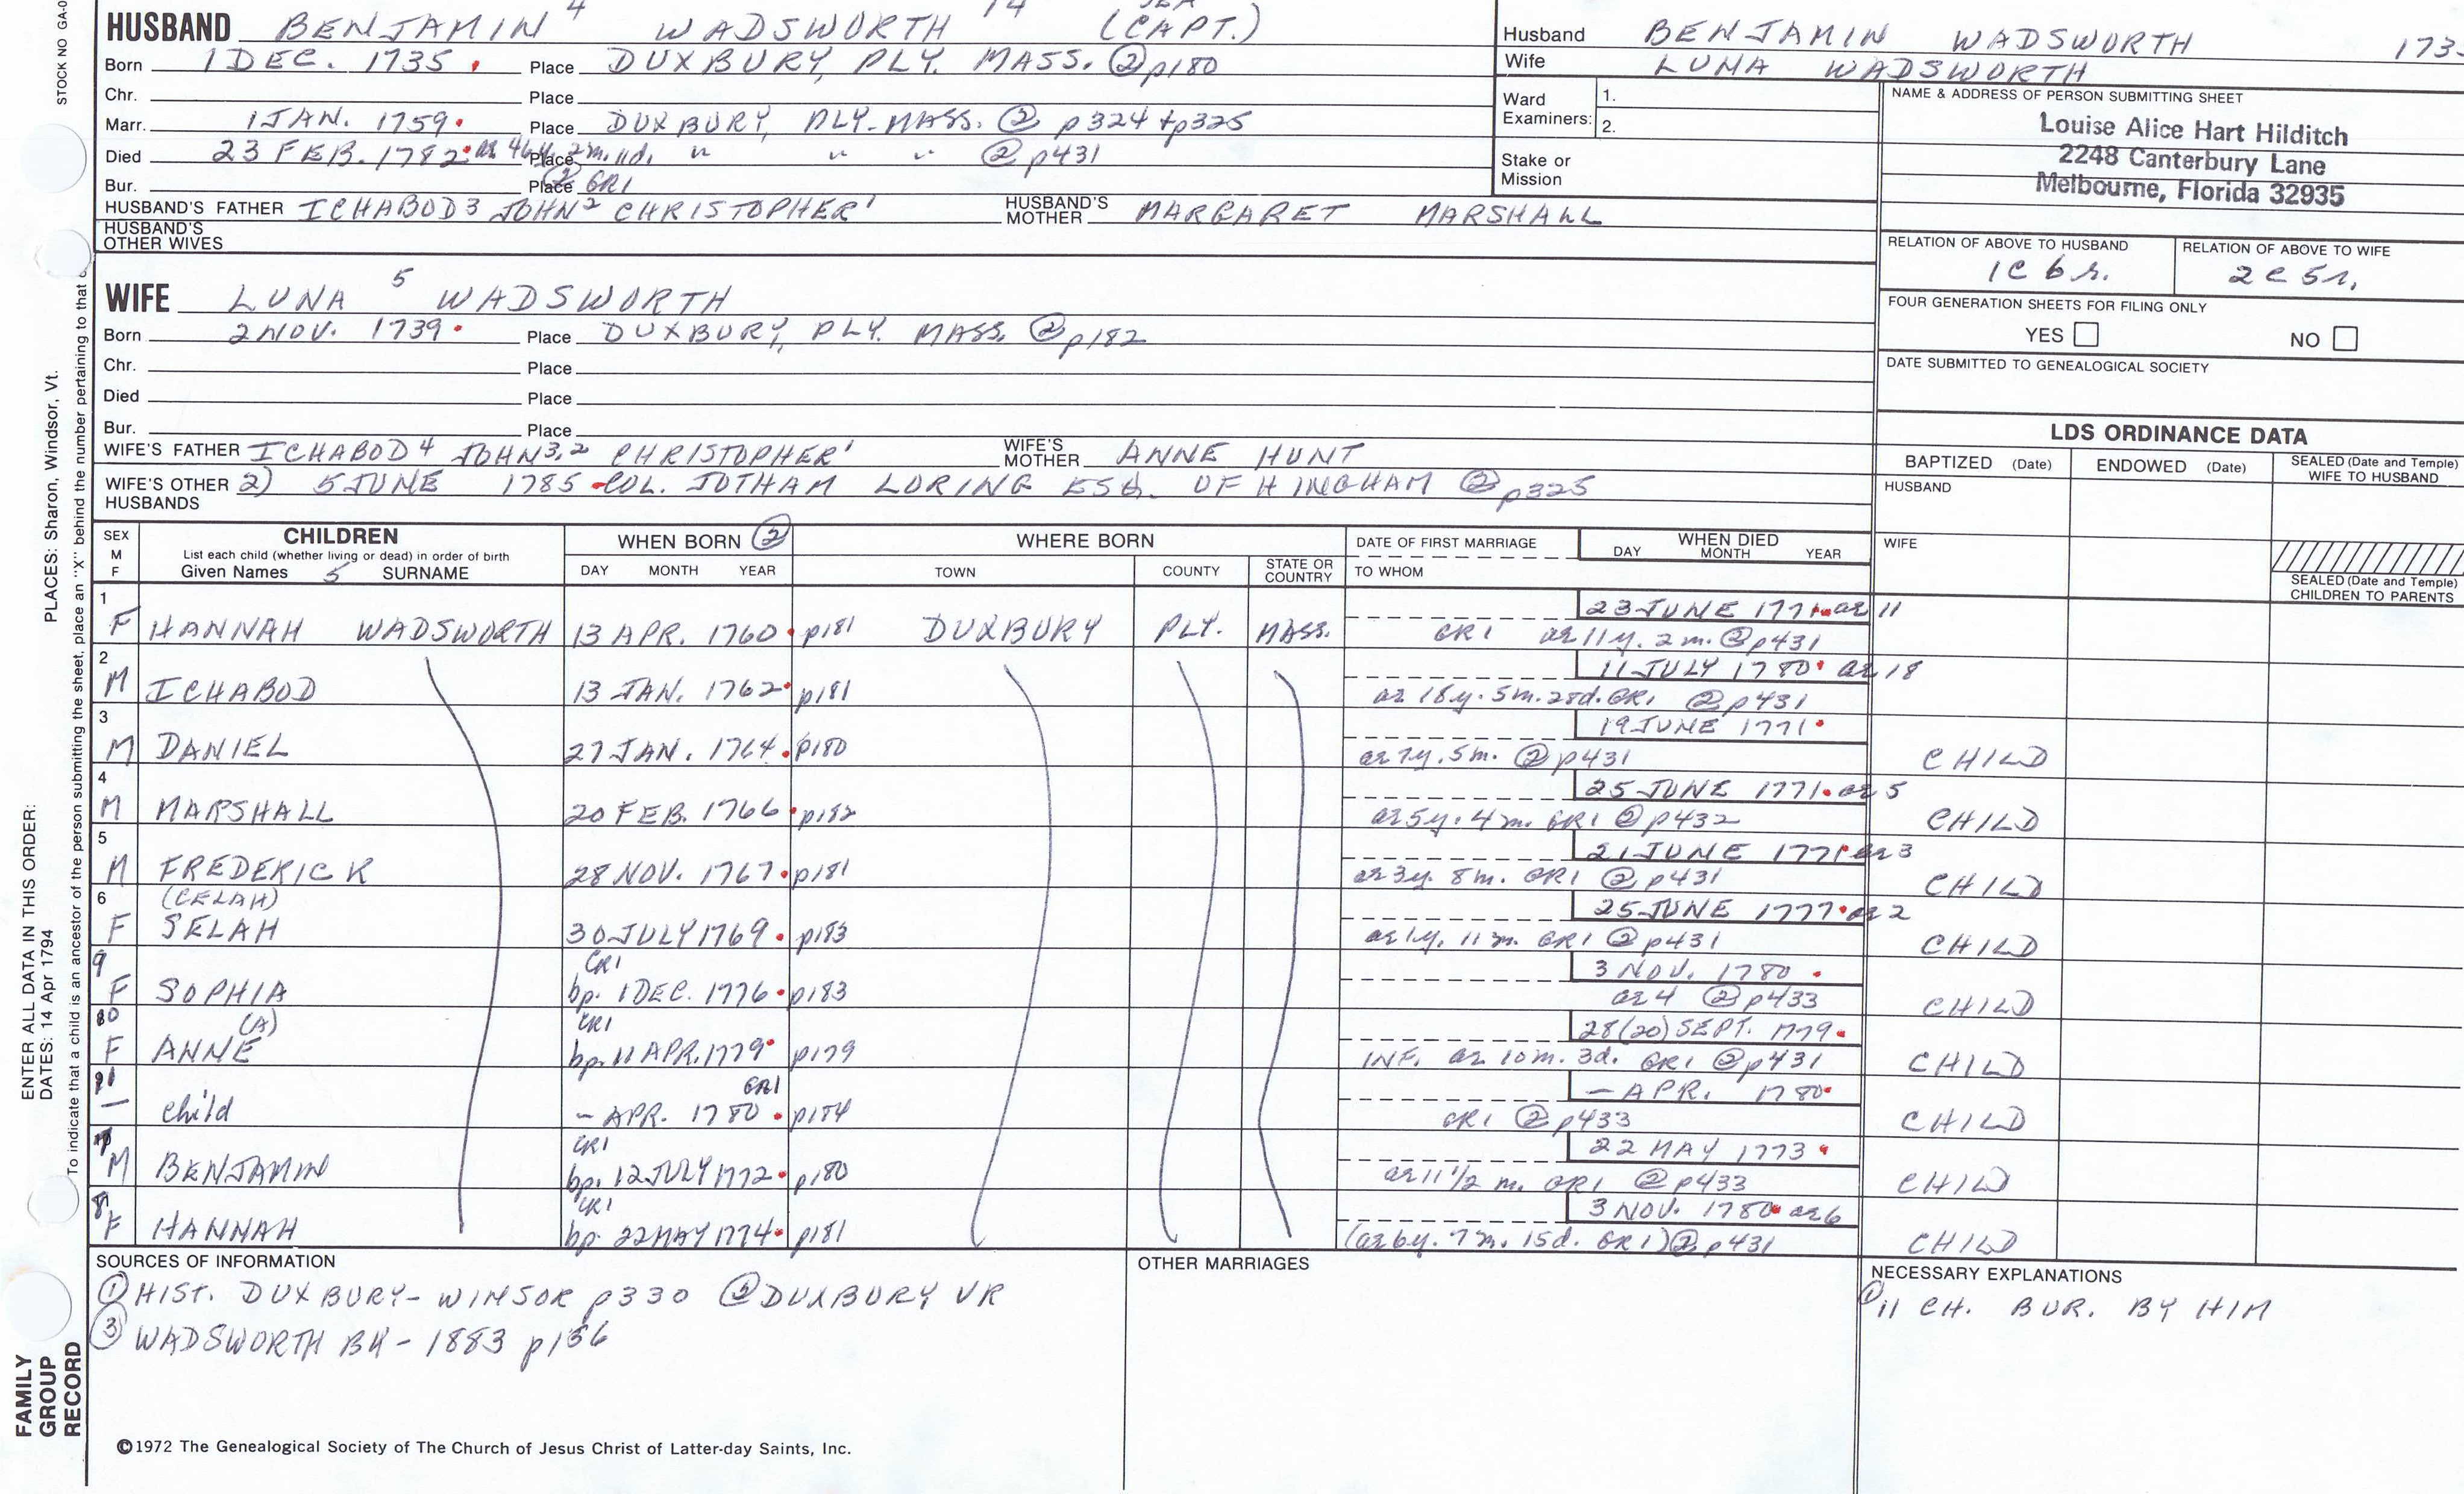 STOCK NO GA-0
PLACES: Sharon, Windsor, Vt.
ENTER ALL DATA IN THIS ORDER:
DATES: 14 Apr 1794
To indicate that a child is an ancestor of the person submitting the sheet, place an "X" behind the number pertaining to that
FAMILY
GROUP
RECORD
HUSBAND BENJAMIN 4 WADSWORTH (CAPT.)
Born 1 DEC. 1735 Place DUXBURY, PLY. MASS. ② p180
Chr. Place
Marr. 1 JAN. 1759 Place DUXBURY, PLY. MASS. ② p324 + p325
Died 23 FEB. 1782 ae 46y. 2m. 11d. Place " " " ② p431
Bur. Place ② GR1
HUSBAND'S FATHER ICHABOD3 JOHN2 CHRISTOPHER1 HUSBAND'S MOTHER MARGARET MARSHALL
HUSBAND'S OTHER WIVES
WIFE LUNA 5 WADSWORTH
Born 2 NOV. 1739 Place DUXBURY, PLY. MASS. ② p182
Chr. Place
Died Place
Bur. Place
WIFE'S FATHER ICHABOD4 JOHN3,2 CHRISTOPHER1 WIFE'S MOTHER ANNE HUNT
WIFE'S OTHER HUSBANDS 2) 5 JUNE 1785 COL. JOTHAM LORING ESQ. OF HINGHAM ② p325
Husband BENJAMIN WADSWORTH 173
Wife LUNA WADSWORTH
Ward Examiners: 1.
2.
Stake or Mission
NAME & ADDRESS OF PERSON SUBMITTING SHEET
Louise Alice Hart Hilditch
2248 Canterbury Lane
Melbourne, Florida 32935
RELATION OF ABOVE TO HUSBAND RELATION OF ABOVE TO WIFE
1C 6r. 2C 5r.
FOUR GENERATION SHEETS FOR FILING ONLY
YES NO
DATE SUBMITTED TO GENEALOGICAL SOCIETY
LDS ORDINANCE DATA
BAPTIZED (Date) ENDOWED (Date) SEALED (Date and Temple) WIFE TO HUSBAND
HUSBAND
WIFE
SEALED (Date and Temple) CHILDREN TO PARENTS
SEX M F CHILDREN WHEN BORN ② WHERE BORN DATE OF FIRST MARRIAGE WHEN DIED
List each child (whether living or dead) in order of birth
Given Names 5 SURNAME DAY MONTH YEAR TOWN COUNTY STATE OR COUNTRY TO WHOM DAY MONTH YEAR
1 23 JUNE 1771 ae 11
F HANNAH WADSWORTH 13 APR. 1760 p181 DUXBURY PLY. MASS. GR1 ae 11y. 2m. ② p431
2 11 JULY 1780 ae 18
M ICHABOD 13 JAN. 1762 p181 ae 18y. 5m. 28d. GR1 ② p431
3 19 JUNE 1771
M DANIEL 27 JAN. 1764 p180 ae 7y. 5m. ② p431 CHILD
4 25 JUNE 1771 ae 5
M MARSHALL 20 FEB. 1766 p182 ae 5y. 4m. GR1 ② p432 CHILD
5 21 JUNE 1771 ae 3
M FREDERICK 28 NOV. 1767 p181 ae 3y. 8m. GR1 ② p431 CHILD
6 (CELAH) 25 JUNE 1777 ae 2
F SELAH 30 JULY 1769 p183 ae 1y. 11m. GR1 ② p431 CHILD
9 CR1 3 NOV. 1780
F SOPHIA bp. 1 DEC. 1776 p183 ae 4 ② p433 CHILD
10 (A) CR1 28 (20) SEPT. 1779
F ANNE bp. 11 APR. 1779 p179 INF. ae 10m. 3d. GR1 ② p431 CHILD
11 GR1 - APR. 1780
- child - APR. 1780 p184 CR1 ② p433 CHILD
7 CR1 22 MAY 1773
M BENJAMIN bp. 12 JULY 1772 p180 ae 11 1/2 m. GR1 ② p433 CHILD
8 CR1 3 NOV. 1780 ae 6
F HANNAH bp. 22 MAY 1774 p181 (ae 6y. 7m. 15d. GR1) ② p431 CHILD
SOURCES OF INFORMATION
① HIST. DUXBURY - WINSOR p330 ② DUXBURY VR
③ WADSWORTH BK - 1883 p156
OTHER MARRIAGES
NECESSARY EXPLANATIONS
① 11 CH. BUR. BY HIM
©1972 The Genealogical Society of The Church of Jesus Christ of Latter-day Saints, Inc.